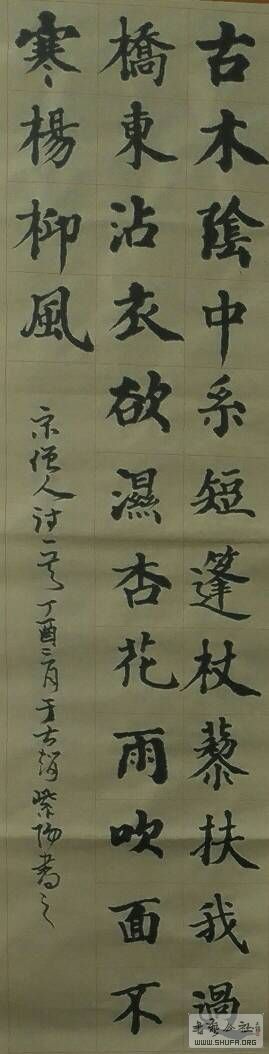 古木陰中系短篷杖藜扶我過
橋東沾衣欲濕杏花雨吹面不
寒楊柳風
宋僧人詩一首丁酉三月于古趙紫陽書之
書藝公社
WWW.SHUFA.ORG